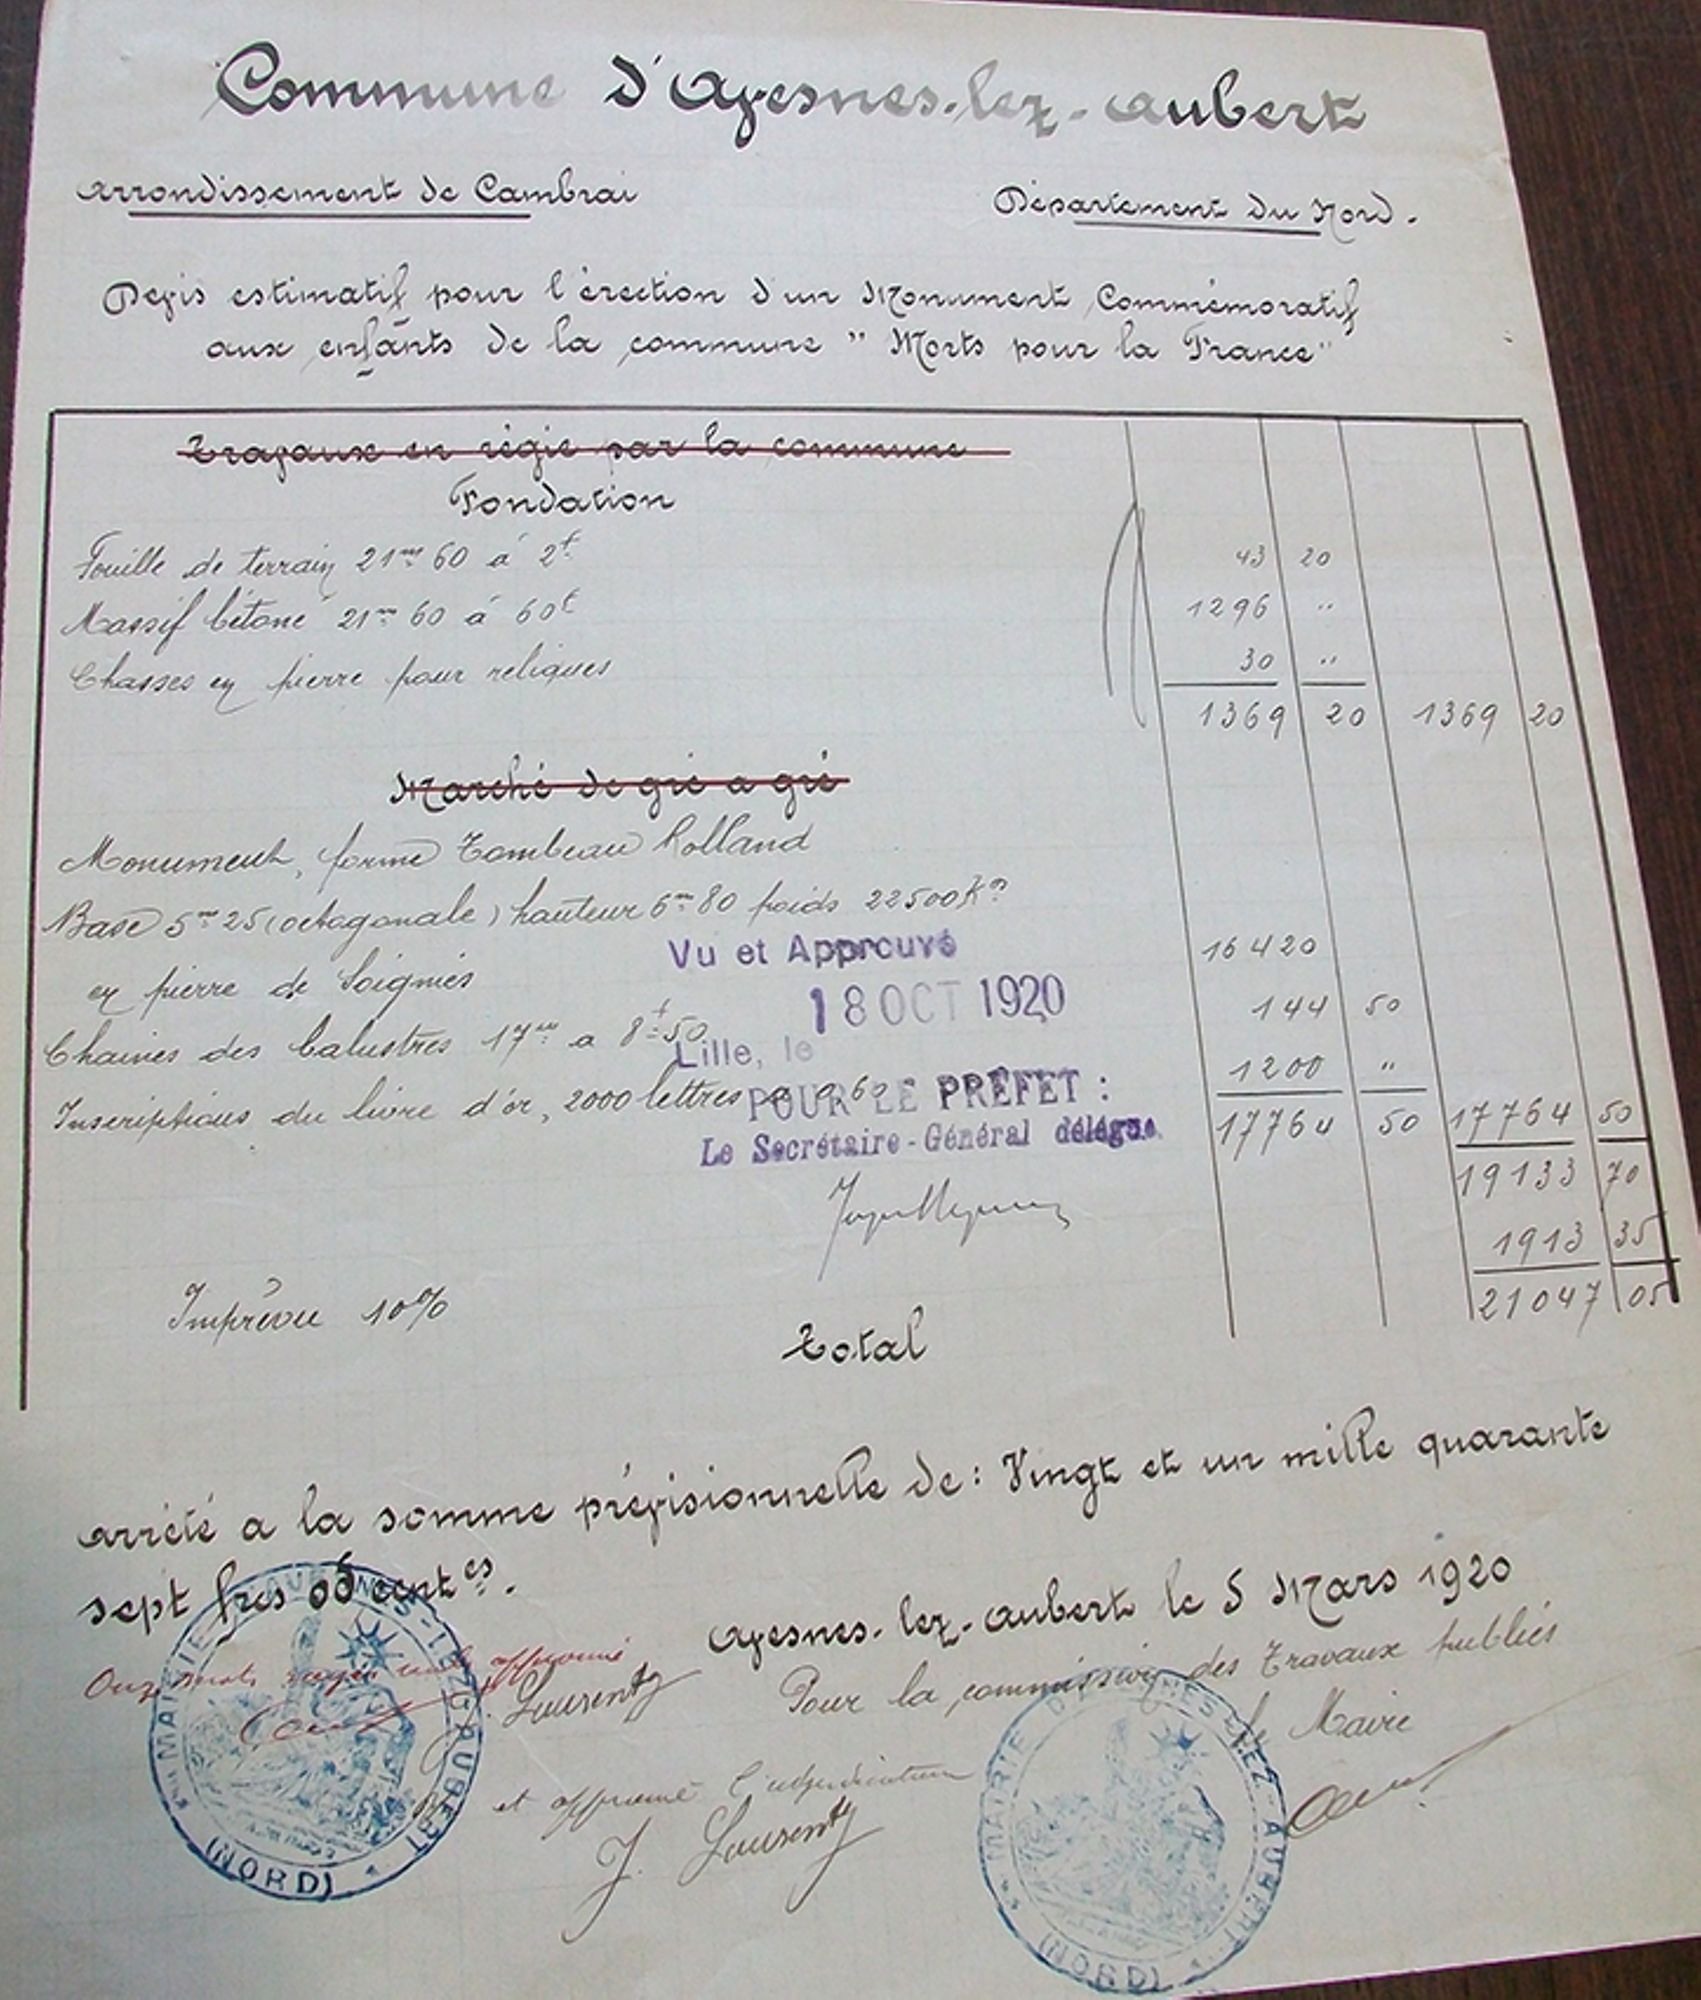 Commune d'Avesnes-lez-Aubert
Arrondissement de Cambrai
Département du Nord.
Devis estimatif pour l'érection d'un Monument Commémoratif
aux enfants de la commune " Morts pour la France"
Travaux en régie par la commune
Fondation
Fouille de terrain 21m 60 à 2f 43 20
Massif bétoné 21m 60 à 60f 1296 "
Chasses en pierre pour reliques 30 "
1369 20 1369 20
Marché de gré a gré
Monument, forme Tombeau Rolland
Base 5m 25 (octogonale) hauteur 6m 80 poids 22500 Kos
en pierre de Soignies 16420
Chaines des balustres 17m a 8f 50 144 50
Inscriptions du livre d'or, 2000 lettres a 0,60 1200 "
17764 50 17764 50
19133 70
Imprévu 10% 1913 35
Total 21047 05
Vu et Approuvé
18 OCT 1920
Lille, le
POUR LE PRÉFET :
Le Secrétaire-Général délégué
arrêté a la somme prévisionnelle de : Vingt et un mille quarante
sept frcs 05 centes.
Avesnes-lez-Aubert le 5 Mars 1920
Pour la commission des Travaux publics
Le Maire
Onze mots rayés nuls approuvé
J. Laurenty
et approuvé l'adjudication
J. Laurenty
MAIRIE D'AVESNES-LEZ-AUBERT
(NORD)
MAIRIE D'AVESNES-LEZ-AUBERT
(NORD)